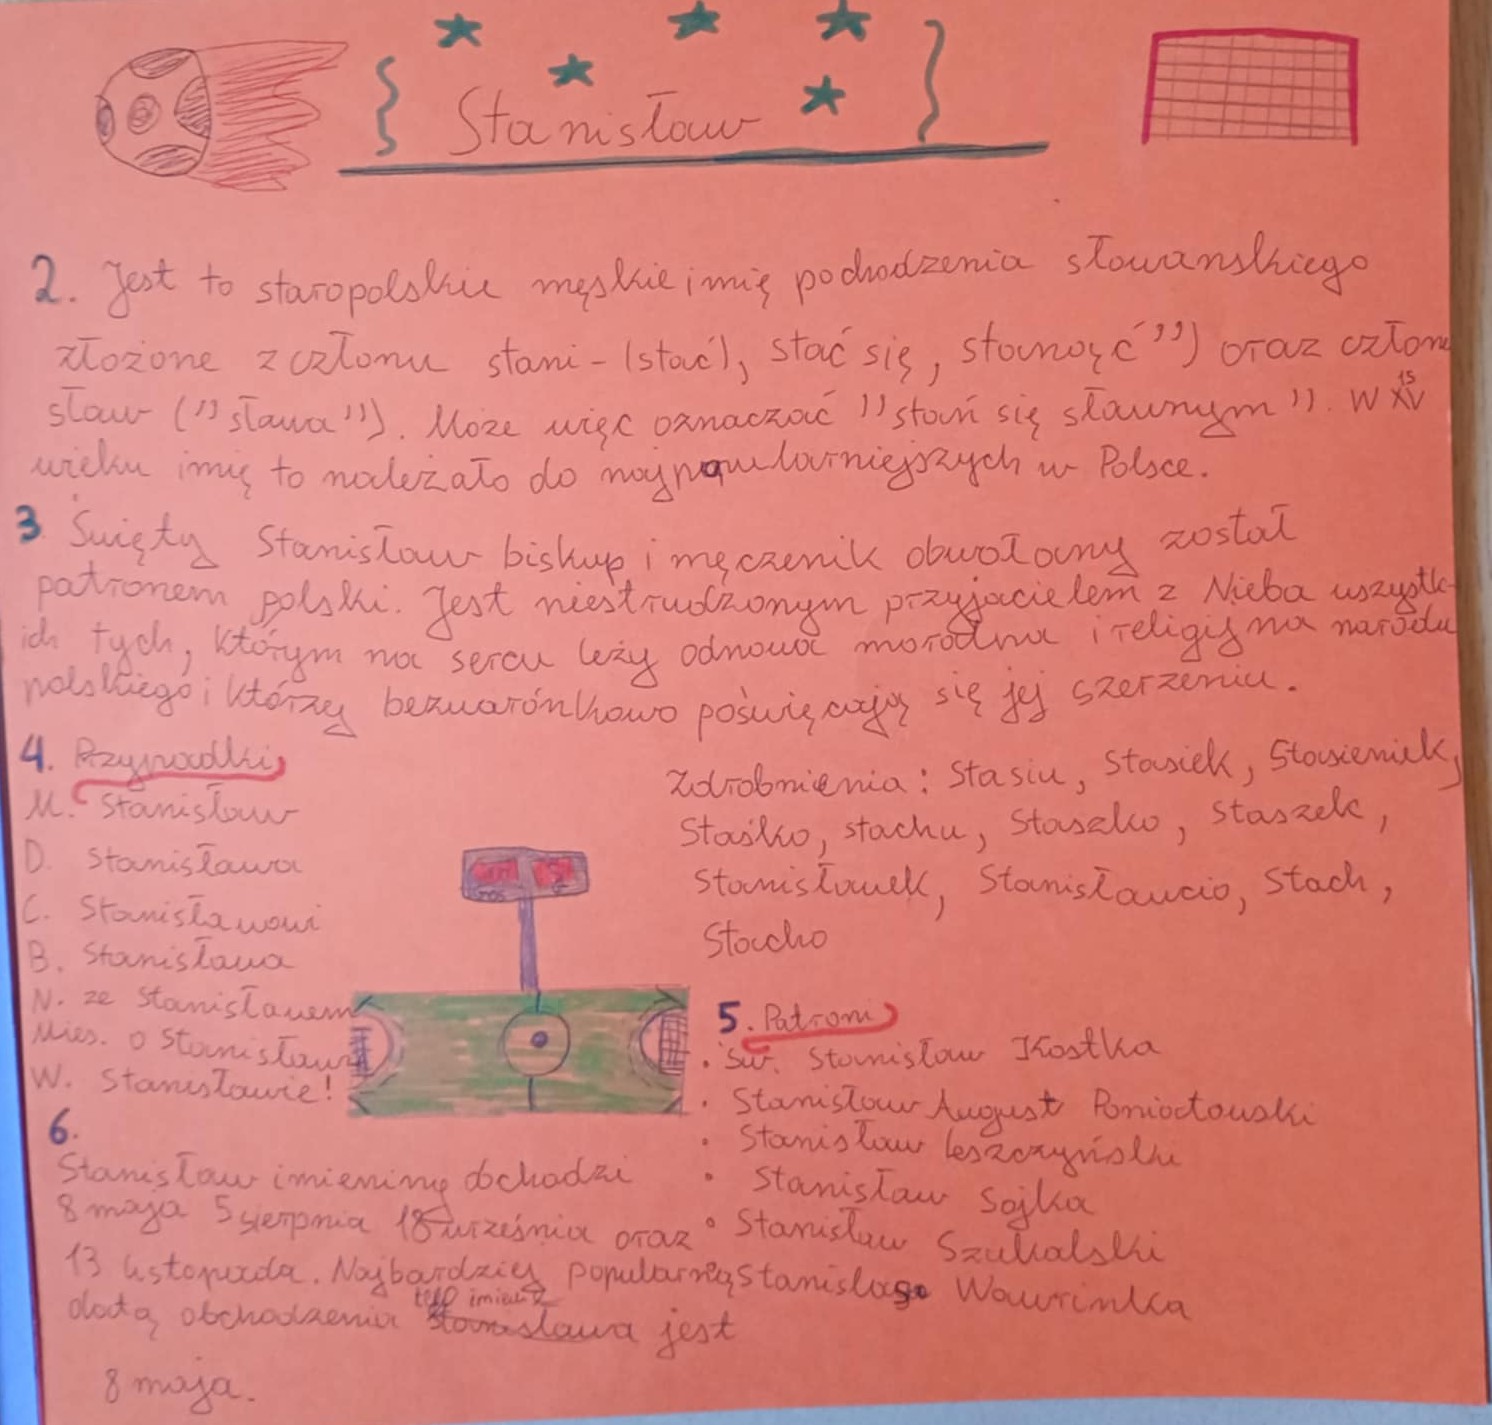 Stanisław
2. Jest to staropolskie męskie imię pochodzenia słowanskiego
złożone z członu stani-(stać), stać się, stanąć”) oraz człone
sław (”sława”). Może więc oznaczać ”stań się sławnym”. W XV
15
wieku imię to należało do najpopularniejszych w Polsce.
3 Święty Stanisław biskup i męczenik obwołany został
patronem polski. Jest niestrudzonym przyjacielem z Nieba wszystk-
ich tych, którym na sercu leży odnowa moralna i religijna narodu
polskiego i którzy bezwarónkowo poświęcają się jej szerzeniu.
4. Przypadki
M. Stanisław
D. Stanisława
C. Stanisławowi
B. Stanisława
N. ze Stanisławem
Mies. o Stanisławie
W. Stanisławie!
Zdrobnienia: Stasiu, Stasiek, Stasieniek,
Staśko, stachu, Staszko, Staszek,
Stanisławek, Stanisławcio, Stach,
Stacho
5. Patroni
• Św. Stanisław Kostka
• Stanisław August Poniatowski
• Stanisław Leszczyński
• Stanisław Sojka
• Stanisław Szukalski
Stanislas Wawrinka
6.
Stanisław imieniny obchodzi
8 maja 5 sierpnia 18 września oraz
13 listopada. Najbardziej popularną
datą obchodzenia tego imienia jest
8 maja.